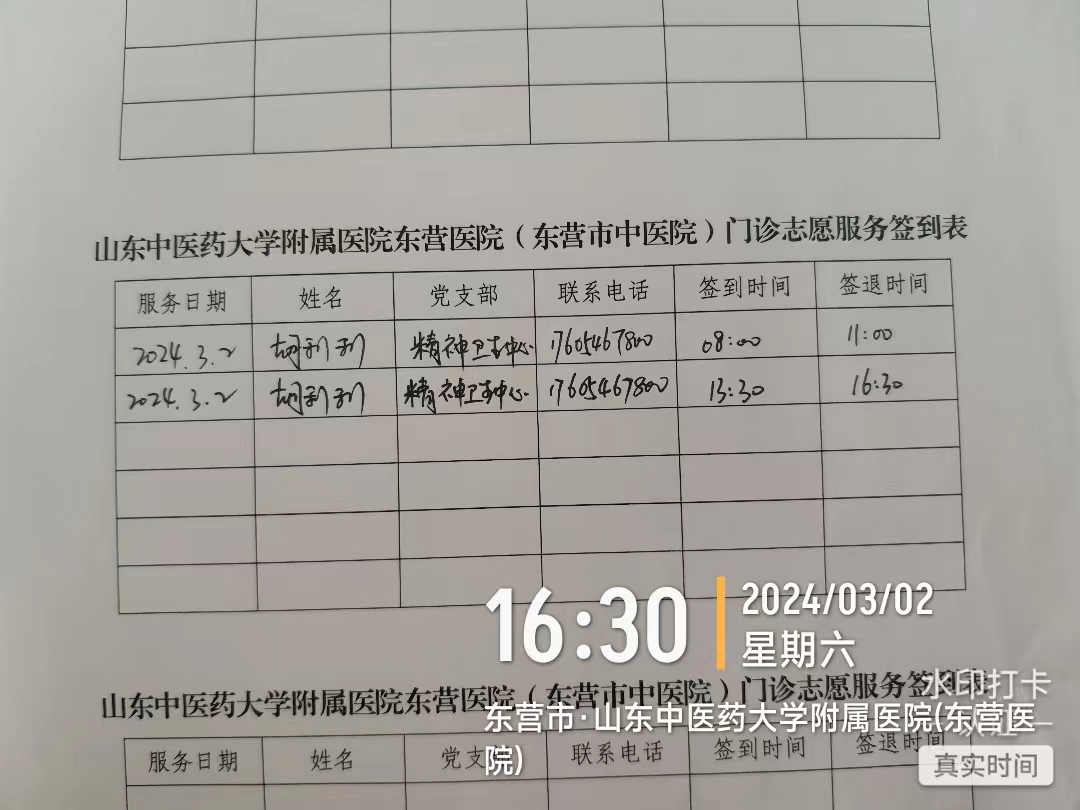 山东中医药大学附属医院东营医院（东营市中医院）门诊志愿服务签到表
服务日期 姓名 党支部 联系电话 签到时间 签退时间
2024.3.2 胡利利 精神卫生中心 17605467800 08:00 11:00
2024.3.2 胡利利 精神卫生中心 17605467800 13:30 16:30
16:30
2024/03/02
星期六
山东中医药大学附属医院东营医院（东营市中医院）门诊志愿服务签到表
水印打卡
东营市·山东中医药大学附属医院(东营医院)
服务日期 姓名 党支 联系电话 签到时间 签退时间
真实时间